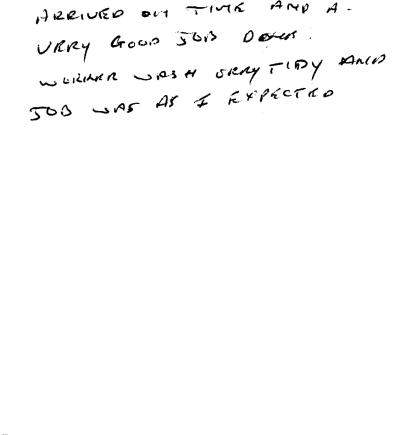 ARRIVED ON TIME AND A
VERY GOOD JOB DONE.
WORKER WAS VERY TIDY AND
JOB WAS AS I EXPECTED